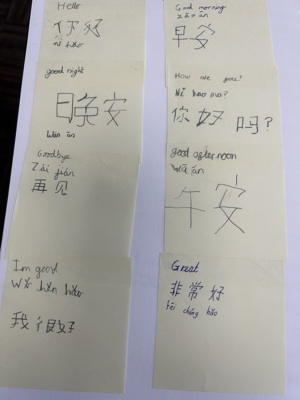 Hello
你好
nǐ hǎo
Good morning
zǎo ān
早安
good night
晚安
Wǎn ān
How are you?
Nǐ hao ma?
你好吗?
Goodbye
Zài jiàn
再见
good afternoon
Wǔ ān
午安
Im good
Wǒ hěn hǎo
我很好
Great
非常好
fēi cháng hǎo